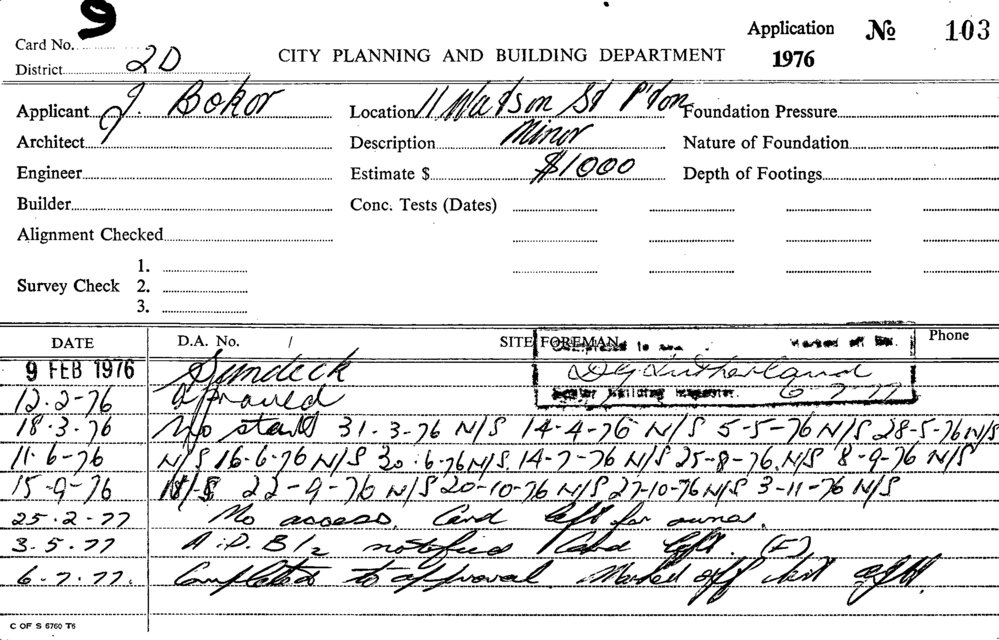 9
Card No.
District 2D
CITY PLANNING AND BUILDING DEPARTMENT
Application № 103
1976
Applicant J. Bokor
Location 11 Watson St P'ton
Foundation Pressure
Architect
Description Minor
Nature of Foundation
Engineer
Estimate $ $1000
Depth of Footings
Builder
Conc. Tests (Dates)
Alignment Checked
Survey Check 1.
2.
3.
DATE D.A. No. / SITE FOREMAN Phone
Completed to Marked off
9 FEB 1976 Sundeck D G Sutherland
Senior Building Inspector. 6 7 77
12-2-76 approved
18.3.76 No start 31-3-76 N/S 14-4-76 N/S 5-5-76 N/S 28-5-76 N/S
11-6-76 N/S 16-6-76 N/S 30-6-76 N/S. 14-7-76 N/S 25-8-76. N/S 8-9-76 N/S
15-9-76 N/S 22-9-76 N/S 20-10-76 N/S 27-10-76 N/S 3-11-76 N/S
25.2.77 No access. Card left for owner.
3.5.77 notified Card left. (F)
6.7.77. Completed to approval Marked off
C OF S 6760 T6